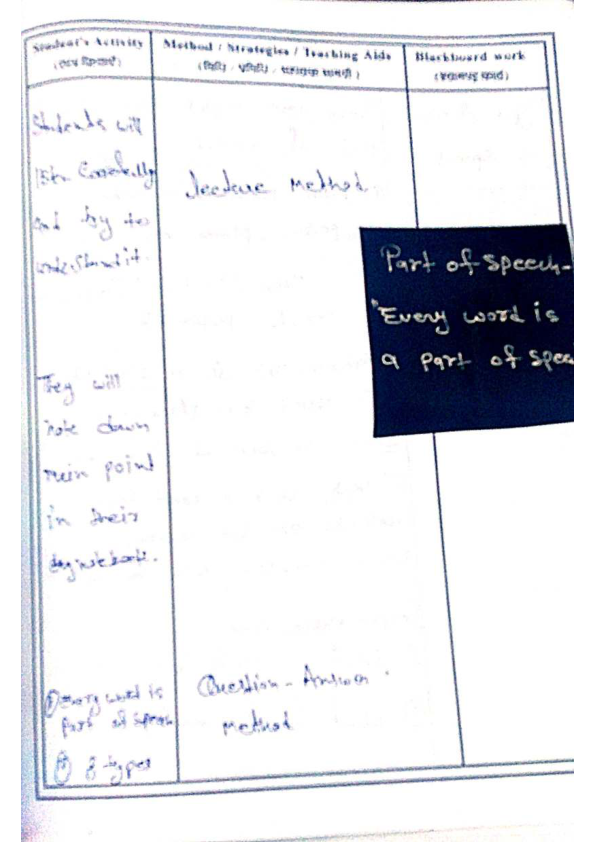 Student's Activity
(छात्र क्रियाएँ)
Method / Strategies / Teaching Aids
(विधि / प्रविधि / सहायक सामग्री)
Blackboard work
(श्यामपट्ट कार्य)
Students will
Carefully
and try to
understand it.
Lecture Method
Part of speech-
"Every word is
a part of spee
They will
note down
main point
in their
Question - Answer
method
Every word is
part of speech
8 types